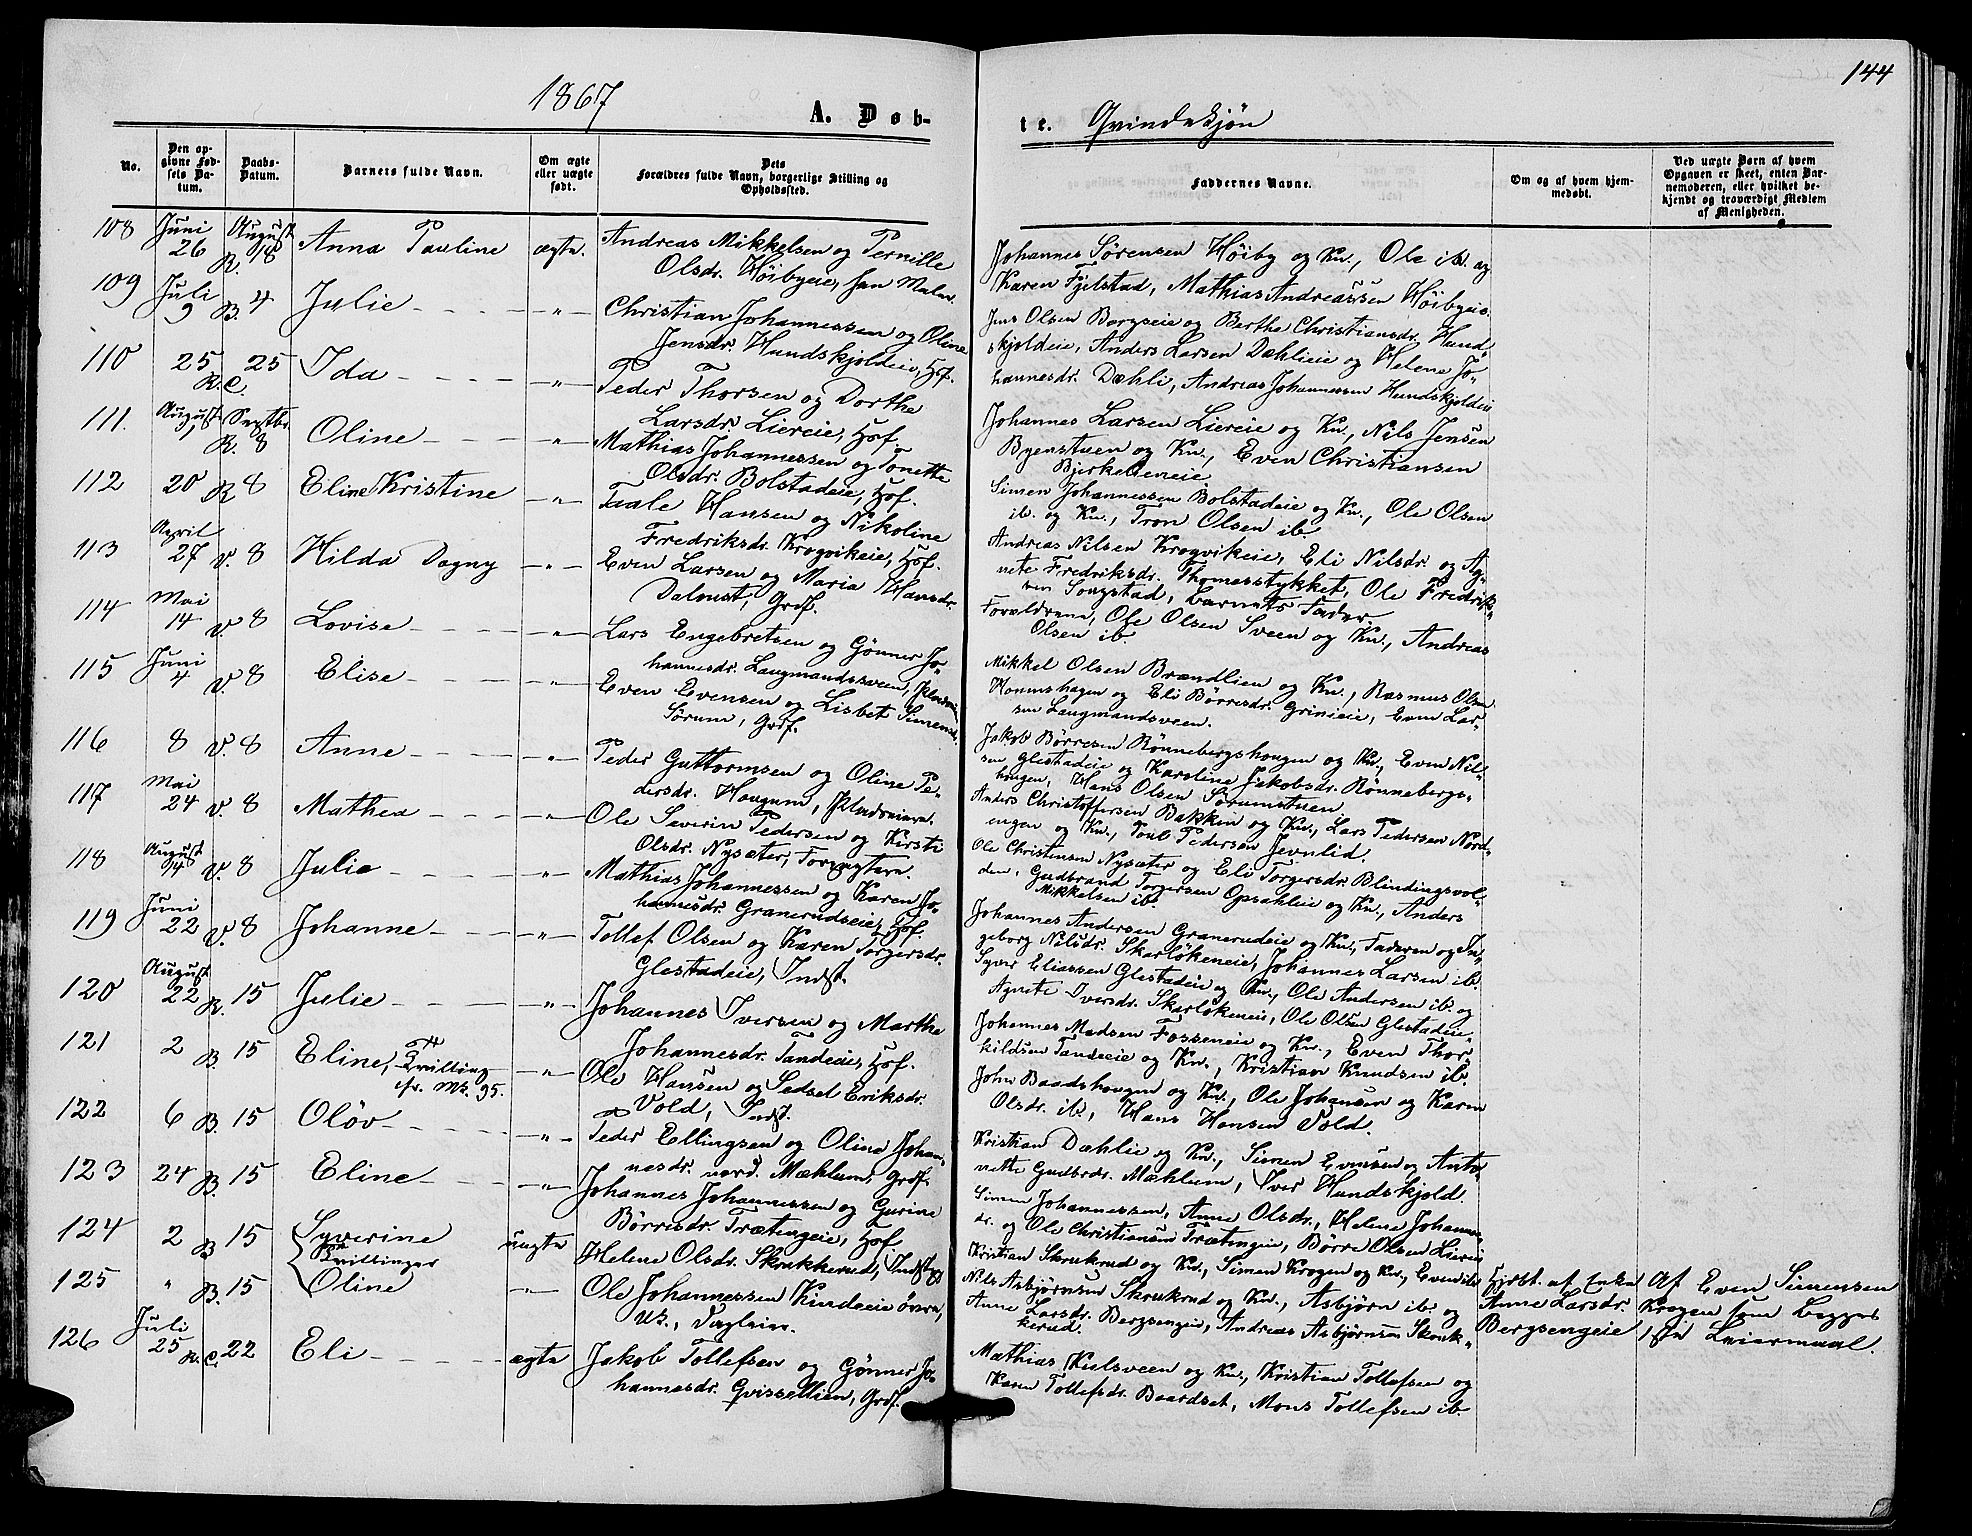 144
1867
A. Døb-
te. Qvindekjøn
No.
Den op-
givne Fød-
sels Da-
tum.
Daabs-
Datum.
Barnets fulde Navn.
Om ægte
eller uægte
født.
Dets
Forældres fulde Navn, borgerlige Stilling og
Opholdssted.
Faddernes Navne.
Om og af hvem hjem-
medøbt.
Ved uægte Børn af hvem
Opgaven er skeet, enten Bar-
nemoderen, eller hvilket be-
kjendt og troværdigt Medlem
af Menigheden.
108 Juni 26 August R. 18 Anna Pauline ægte. Andreas Mikkelsen og Pernille
Olsdr. Høibyeie,
Johannes Sørensen Høiby og Kn., Ole ib. og
Karen Fjelstad, Mathias Andreassen Høibyeie.
109 Juli 9 B. 4 Julie - " - Christian Johannessen og Oline
Jensdr. Hundskjoldeie, Hof.
Jens Olsen Borgseie og Berthe Christiansdr. Hund
skjoldeie, Anders Larsen Dæhlieie og Helene Jo-
hannesdr. Dæhli, Andreas Johannessen Hundskjoldeie
110 25 25 R. C. Ida - " - Peder Thorsen og Dorthe
Larsdr. Liereie, Hof.
Johannes Larsen Liereie og Kn., Nils Jensen
Byenstuen og Kn., Even Christiansen
111. August Septbr. R. 8 Oline - " - Mathias Johannessen og Tonette
Olsdr. Bolstadeie, Hof.
Simen Johannessen Bolstadeie og Kn., Ole Olsen
ib. og Kn., Tron Olsen ib.
112 20 R 8 Eline Kristine - " - Paale Hansen og Nikoline
Fredriksdr. Krogvikeie, Hof.
Andreas Nilsen Krogvikeie, Eli Nilsdr. og Ag-
nete Fredriksdr. Thomasstykket, Ole Fredrik-
sen Sougstad, Barnets Fader.
113 April 27 V. 8 Hilda Dagny - " - Even Larsen og Maria Hansdr.
Forældrene, Ole Olsen Sveen og Kn., Andreas
Olsen ib.
114 Mai 14 V. 8 Lovise - " - Lars Engebretsen og Gønner Jo-
hannesdr. Laugmandssveen,
Mikkel Olsen Brændlien og Kn., Rasmus Olsen
Hommshagen og Eli Børresdr. Grinieie, Even Lar-
sen Laugmandsveen.
115 Juni 4 V. 8 Elise - " - Even Evensen og Lisbet Simensd.
Sørum, Grdf.
Jakob Børresen Rønnebergshougen og Kn., Even Nil-
sen Glestadeie og Karoline Jakobsdr. Rønnebergs-
hougen, Hans Olsen Sørumstuen
116 8 V. 8 Anne - " - Peder Guttormsen og Oline Pe-
dersdr. Hougum,
Anders Christoffersen Bakken og Kn., Lars Pedersen Nord-
engen og Kn., Poul Pedersen Jevnlid.
117 Mai 24 V. 8 Mathea - " - Ole Severin Pedersen og Kirsti
Olsdr. Nysæter,
Ole Christensen Nysæter og Eli Torgersdr. Blindingsvol-
den, Gudbrand Torgersen Opsahleie og Kn., Anders
Mikkelsen ib.
118 August 14 V. 8 Julie " - Mathias Johannessen og Karen Jo-
hannesdr. Granerudseie, Hof.
Johannes Andersen Granerudeie og Kn., Faderen og In-
geborg Nilsdr. Skarløkeneie, Johannes Larsen ib.
119 Juni 22 V. 8 Johanne - " - Tollef Olsen og Karen Torgersdr.
Glestadeie, Indst.
Syver Eliassen Glestadeie og Kn., Ole Andersen ib. og
Agnete Iversdr. Skarløkeneie, Ole Olsen Glestadeie
120 August 22 R. 15 Julie " - Johannes Iversen og Marthe
Johannesdr. Tandeeie, Hof.
Johannes Madsen Fosseneie og Kn., Even Thor-
kildsen Tandeeie og Kn., Kristian Knudsen ib.
121 2 B. 15 Eline, Tvilling
fr. Mk. 95. - " - Ole Hansen og Sedsel Eriksdr.
Vold, Indst.
John Baadshougen og Kn., Ole Johansen og Karen
Olsdr. ib., Hans Hansen Vold.
122 6 B. 15 Oløv - " - Peder Ellingsen og Oline Johan-
nesdr. nord. Mæhlum, Grdf.
Kristian Dæhlie og Kn., Simen Evensen og Anto-
nette Gudbrdr. Mæhlum, Iver Hundskjold.
123 24 B. 15 Eline - " - Johannes Johannessen og Gurine
Børresdr. Trætengeie, Hof
Simen Johannessen, Anne Olsdr., Helene Johannes-
dr. og Ole Christiansen Trætengeie, Børre Olsen Liereie
124 2 B 15 Syverine
Tvillinger uægte Helene Olsdr. Skrukkerud, Indst. og
Kristian Skrukrud og Kn., Simen Krogen og Kn., Even ib.
125 " B. 15 Oline - " - Ole Johannessen Kindeeie øvre,
Uk., Vaglein.
Nils Asbjørnsen Skrukrud og Kn., Asbjørn ib. og
Anne Larsdr. Bergsengeie, Andreas Asbjørnsen Skruk-
kerud.
Hjdbt. af Enke
Anne Larsdr.
Bergsengeie
Af Even Simensen
Krogen som begges
1ste Leiermaal.
126 Juli 25 R. C. 22 Eli - ægte Jakob Tollefsen og Gønner Jo-
hannesdr. Qvissellien, Grdf.
Mathias Kulsveen og Kn., Kristian Tollefsen og
Karen Tollefsdr. Baardset, Mons Tollefsen ib.